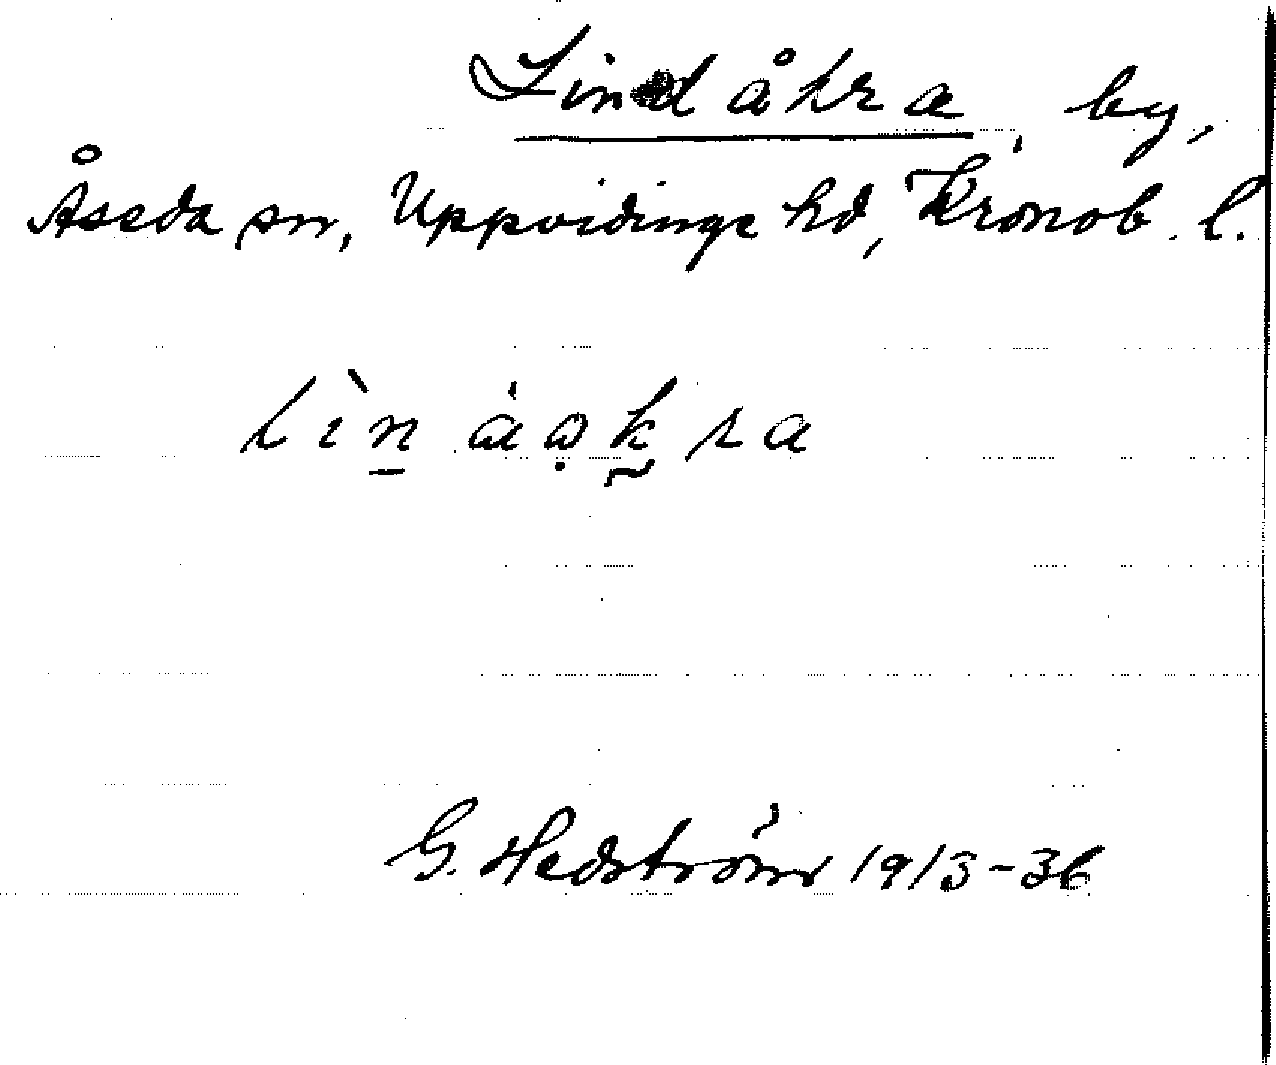 Lindåkra, by,
Åseda sn, Uppvidinge hd, Kronob. l.
lìn̲áọk̰ra
G. Hedström 19/3-36